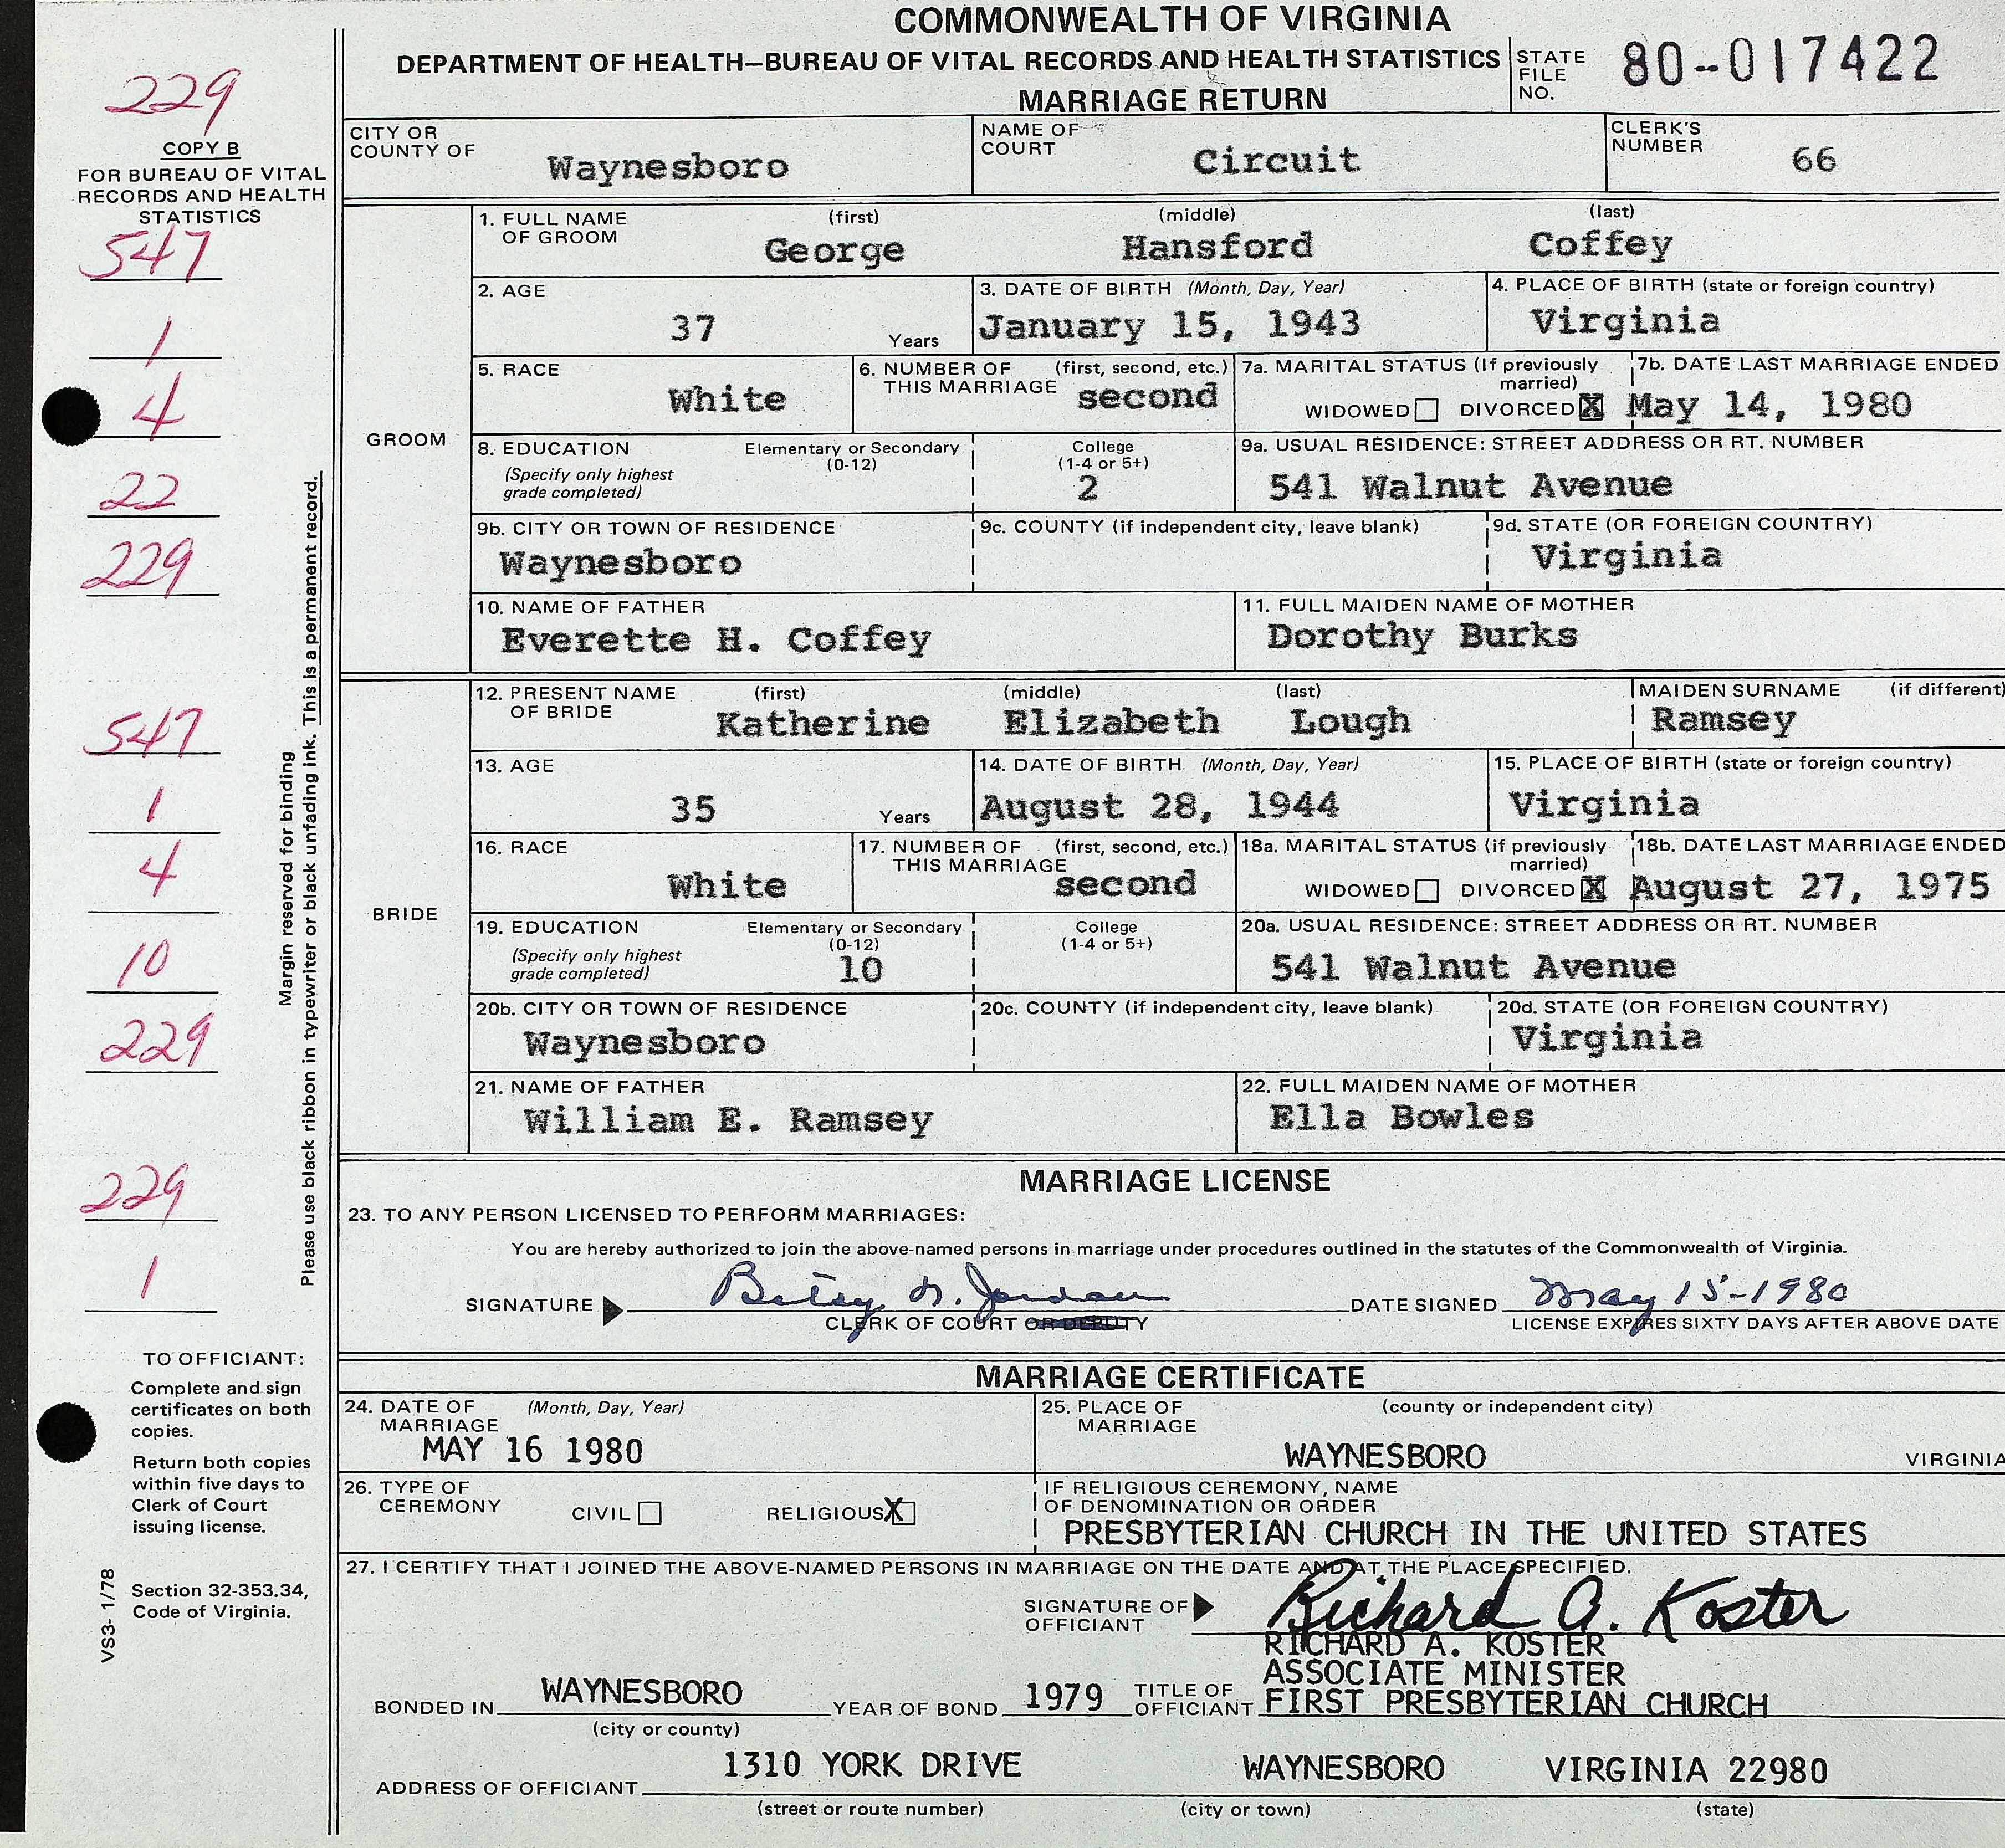 COMMONWEALTH OF VIRGINIA
DEPARTMENT OF HEALTH—BUREAU OF VITAL RECORDS AND HEALTH STATISTICS
MARRIAGE RETURN
STATE FILE NO. 80-017422
229
COPY B
FOR BUREAU OF VITAL
RECORDS AND HEALTH
STATISTICS
547
1
4
22
229
547
1
4
10
229
229
1
Margin reserved for binding
Please use black ribbon in typewriter or black unfading ink. This is a permanent record.
TO OFFICIANT:
Complete and sign
certificates on both
copies.
Return both copies
within five days to
Clerk of Court
issuing license.
Section 32-353.34,
Code of Virginia.
VS3- 1/78
CITY OR COUNTY OF Waynesboro
NAME OF COURT Circuit
CLERK'S NUMBER 66
GROOM
1. FULL NAME OF GROOM (first) George (middle) Hansford (last) Coffey
2. AGE 37 Years
3. DATE OF BIRTH (Month, Day, Year) January 15, 1943
4. PLACE OF BIRTH (state or foreign country) Virginia
5. RACE White
6. NUMBER OF THIS MARRIAGE (first, second, etc.) second
7a. MARITAL STATUS (If previously married) WIDOWED DIVORCED X
7b. DATE LAST MARRIAGE ENDED May 14, 1980
8. EDUCATION (Specify only highest grade completed) Elementary or Secondary (0-12) College (1-4 or 5+) 2
9a. USUAL RESIDENCE: STREET ADDRESS OR RT. NUMBER 541 Walnut Avenue
9b. CITY OR TOWN OF RESIDENCE Waynesboro
9c. COUNTY (if independent city, leave blank)
9d. STATE (OR FOREIGN COUNTRY) Virginia
10. NAME OF FATHER Everette H. Coffey
11. FULL MAIDEN NAME OF MOTHER Dorothy Burks
BRIDE
12. PRESENT NAME OF BRIDE (first) Katherine (middle) Elizabeth (last) Lough
MAIDEN SURNAME (if different) Ramsey
13. AGE 35 Years
14. DATE OF BIRTH (Month, Day, Year) August 28, 1944
15. PLACE OF BIRTH (state or foreign country) Virginia
16. RACE White
17. NUMBER OF THIS MARRIAGE (first, second, etc.) second
18a. MARITAL STATUS (if previously married) WIDOWED DIVORCED X
18b. DATE LAST MARRIAGE ENDED August 27, 1975
19. EDUCATION (Specify only highest grade completed) Elementary or Secondary (0-12) 10 College (1-4 or 5+)
20a. USUAL RESIDENCE: STREET ADDRESS OR RT. NUMBER 541 Walnut Avenue
20b. CITY OR TOWN OF RESIDENCE Waynesboro
20c. COUNTY (if independent city, leave blank)
20d. STATE (OR FOREIGN COUNTRY) Virginia
21. NAME OF FATHER William E. Ramsey
22. FULL MAIDEN NAME OF MOTHER Ella Bowles
MARRIAGE LICENSE
23. TO ANY PERSON LICENSED TO PERFORM MARRIAGES:
You are hereby authorized to join the above-named persons in marriage under procedures outlined in the statutes of the Commonwealth of Virginia.
SIGNATURE Betsy N. Jordan DATE SIGNED May 15-1980
CLERK OF COURT OR DEPUTY LICENSE EXPIRES SIXTY DAYS AFTER ABOVE DATE
MARRIAGE CERTIFICATE
24. DATE OF MARRIAGE (Month, Day, Year) MAY 16 1980
25. PLACE OF MARRIAGE (county or independent city) WAYNESBORO VIRGINIA
26. TYPE OF CEREMONY CIVIL RELIGIOUS X
IF RELIGIOUS CEREMONY, NAME OF DENOMINATION OR ORDER
PRESBYTERIAN CHURCH IN THE UNITED STATES
27. I CERTIFY THAT I JOINED THE ABOVE-NAMED PERSONS IN MARRIAGE ON THE DATE AND AT THE PLACE SPECIFIED.
SIGNATURE OF OFFICIANT Richard A. Koster
RICHARD A. KOSTER
ASSOCIATE MINISTER
BONDED IN WAYNESBORO YEAR OF BOND 1979 TITLE OF OFFICIANT FIRST PRESBYTERIAN CHURCH
(city or county)
ADDRESS OF OFFICIANT 1310 YORK DRIVE WAYNESBORO VIRGINIA 22980
(street or route number) (city or town) (state)